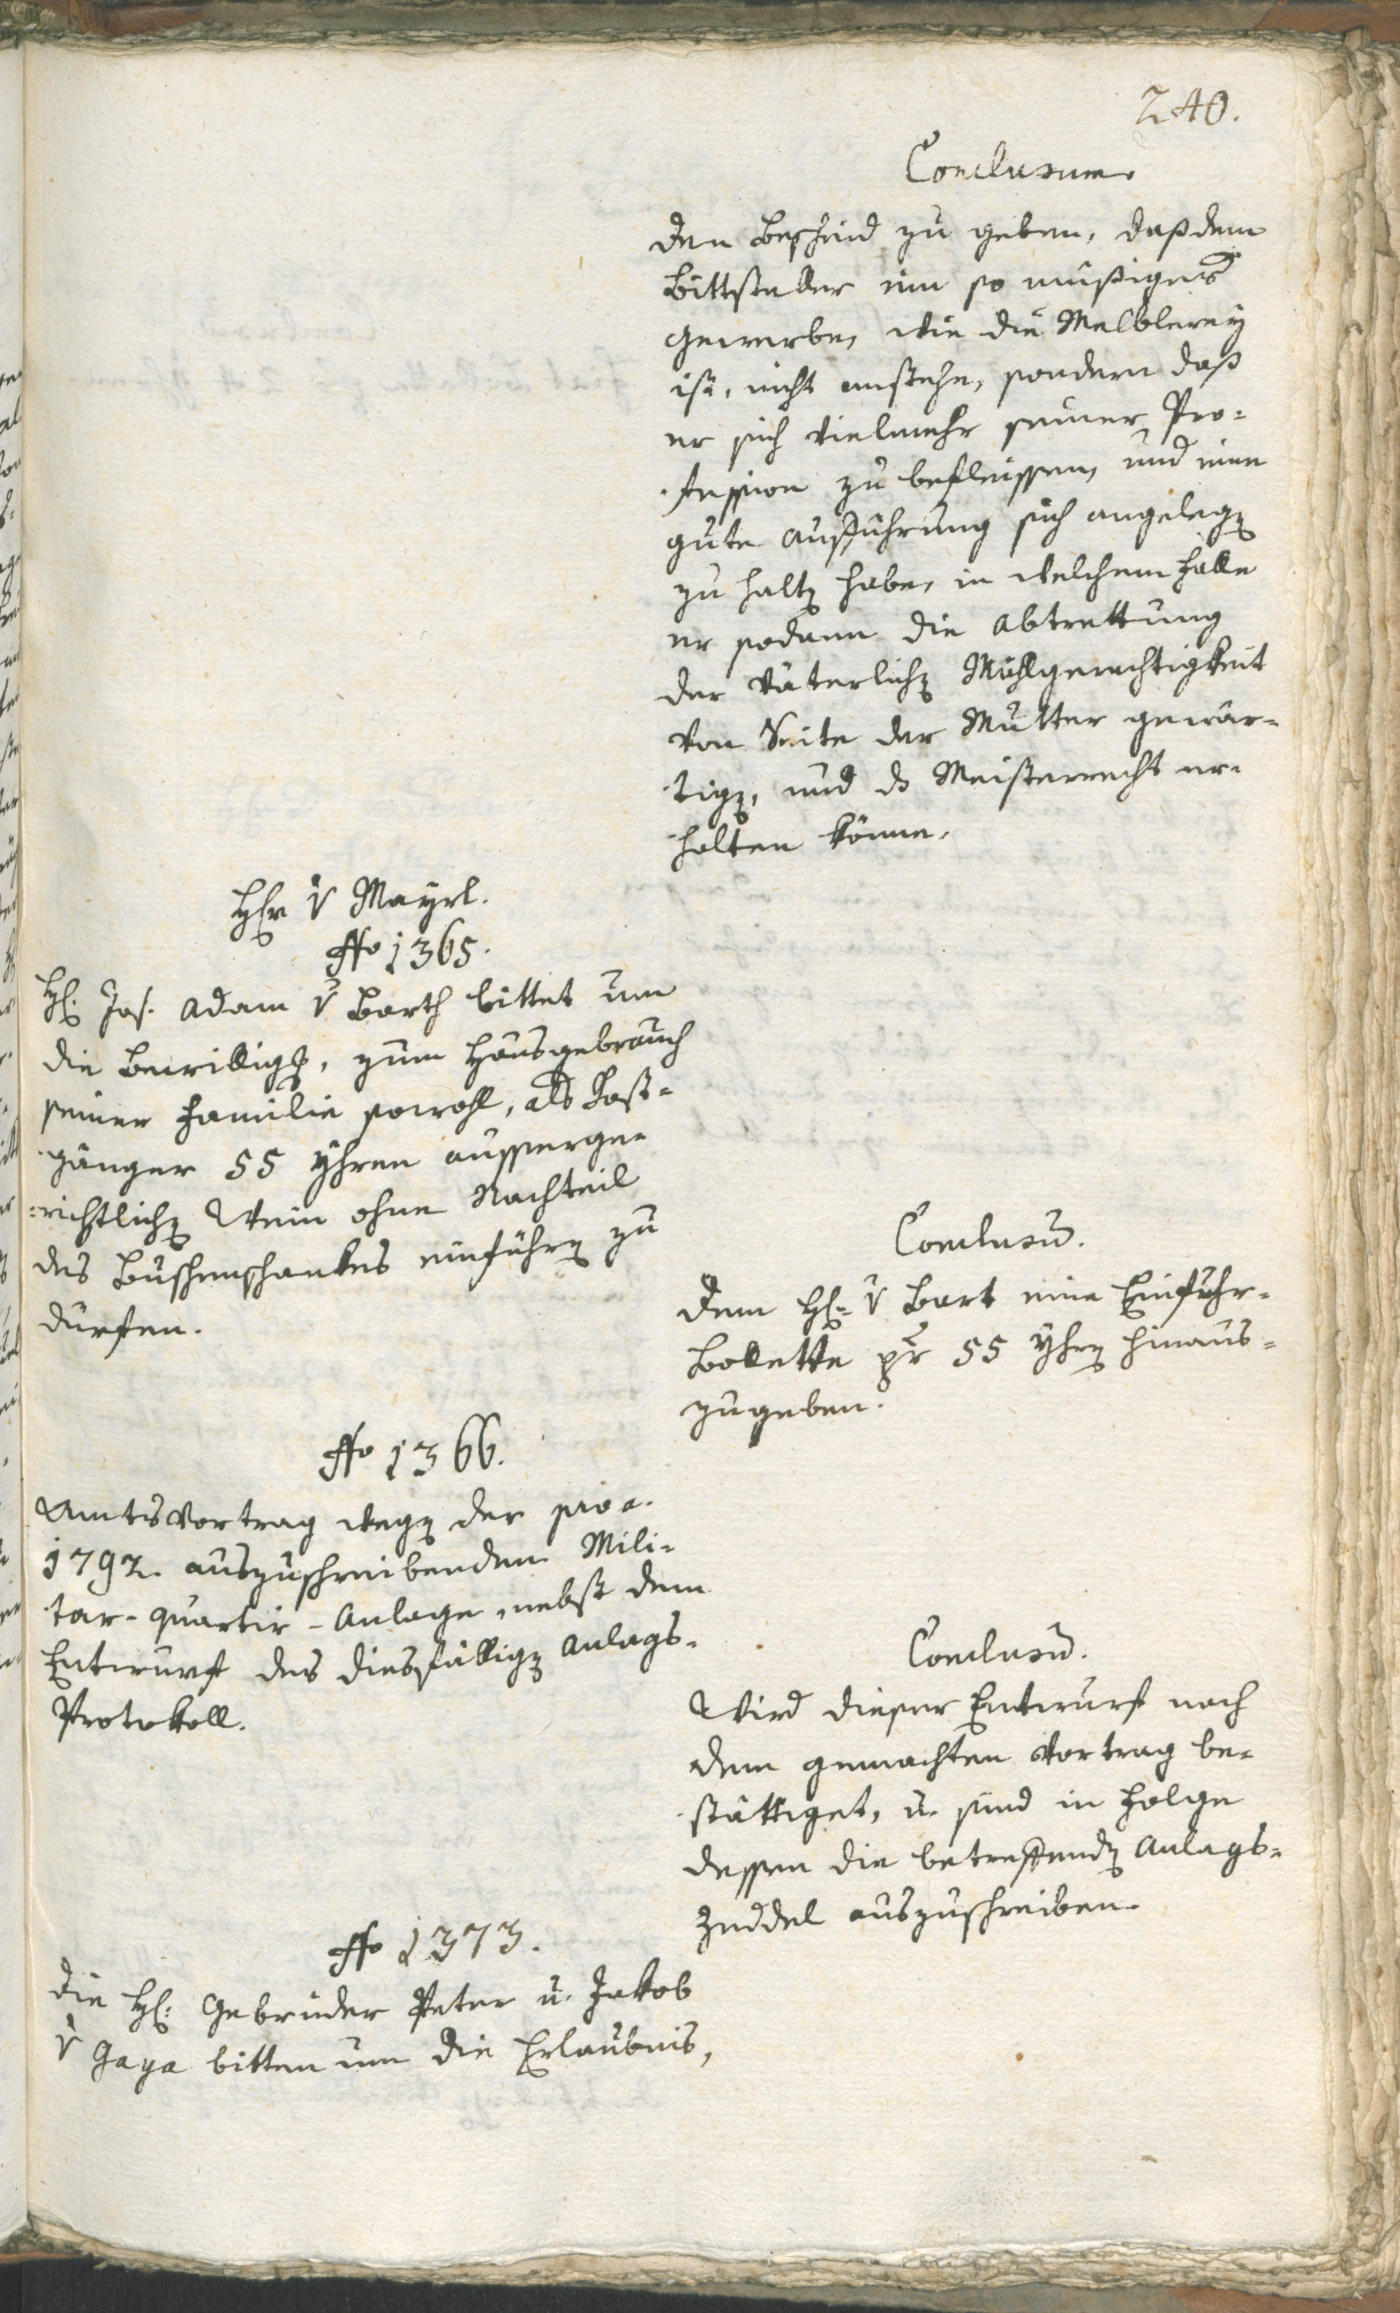 240.
Conclusum.
den Bescheid zu geben, daß dem
Bittsteller ein so müßiges
Gewerbe, wie die Melblerey
ist, nicht anstehe, sondern daß
er sich vielmehr seiner Pro-
fession zu befleissen, und eine
gute Aufführung sich angeleg
zu halt habe, in welchem Falle
er sodann die Abtrettung
der väterlich Mühlgerechtigkeit
von Seite der Mutter gewär-
tig, und ds Meisterrecht er-
halten könne.
Hr v Mayrl.
No 1365.
H: Jos. Adam v Barth bittet um
die Bewillig, zum Hausgebrauch
seiner Familie sowohl, als Kost-
gänger 55 Yhren ausserge-
richtlich Wein ohne Nachteil
des Buschenschankes einführ zu
dürfen.
Conclusum.
dem H: v Bart eine Einfuhr-
Bolette pr 55 Yhr hinaus-
zugeben.
No 1366.
Amtsvortrag weg der pro a.
1792. auszuschreibenden Mili-
tar-Quartir-Anlage, nebst dem
Entwurf des diesfällig Anlags-
Protokoll.
Conclusum.
Wird dieser Entwurf nach
dem gemachten Vortrag be-
stättiget, u. sind in Folge
dessen die betreffend Anlags-
Zeddel auszuschreiben.
No 1373.
Die H: Gebrüder Peter u. Jakob
v Gaya bitten um die Erlaubnis,